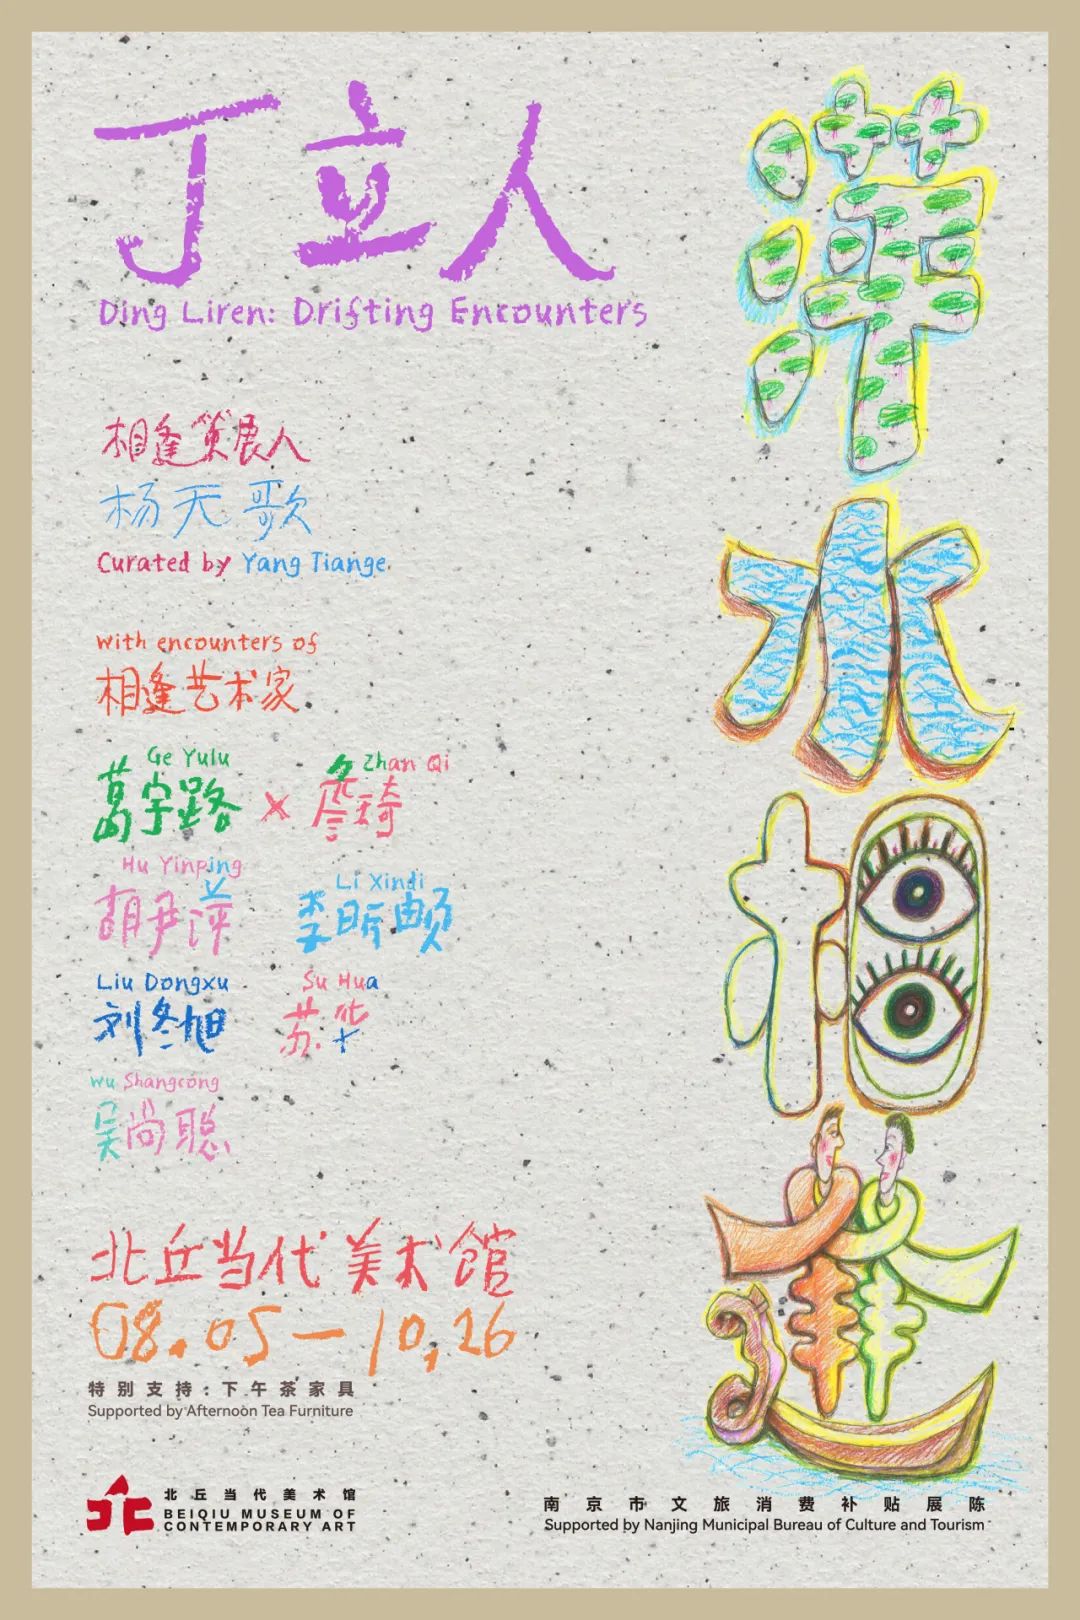 丁立人
Ding Liren: Drifting Encounters
萍水相逢
相逢策展人
杨天歌
Curated by Yang Tiange
with encounters of
相逢艺术家
Ge Yulu
葛宇路
×
Zhan Qi
詹琦
Hu Yinping
胡尹萍
Li Xindi
李昕頔
Liu Dongxu
刘冬旭
Su Hua
苏华
Wu Shangcong
吴尚聪
北丘当代美术馆
08.05—10.26
特别支持:下午茶家具
Supported by Afternoon Tea Furniture
北丘当代美术馆
BEIQIU MUSEUM OF
CONTEMPORARY ART
南京市文旅消费补贴展陈
Supported by Nanjing Municipal Bureau of Culture and Tourism